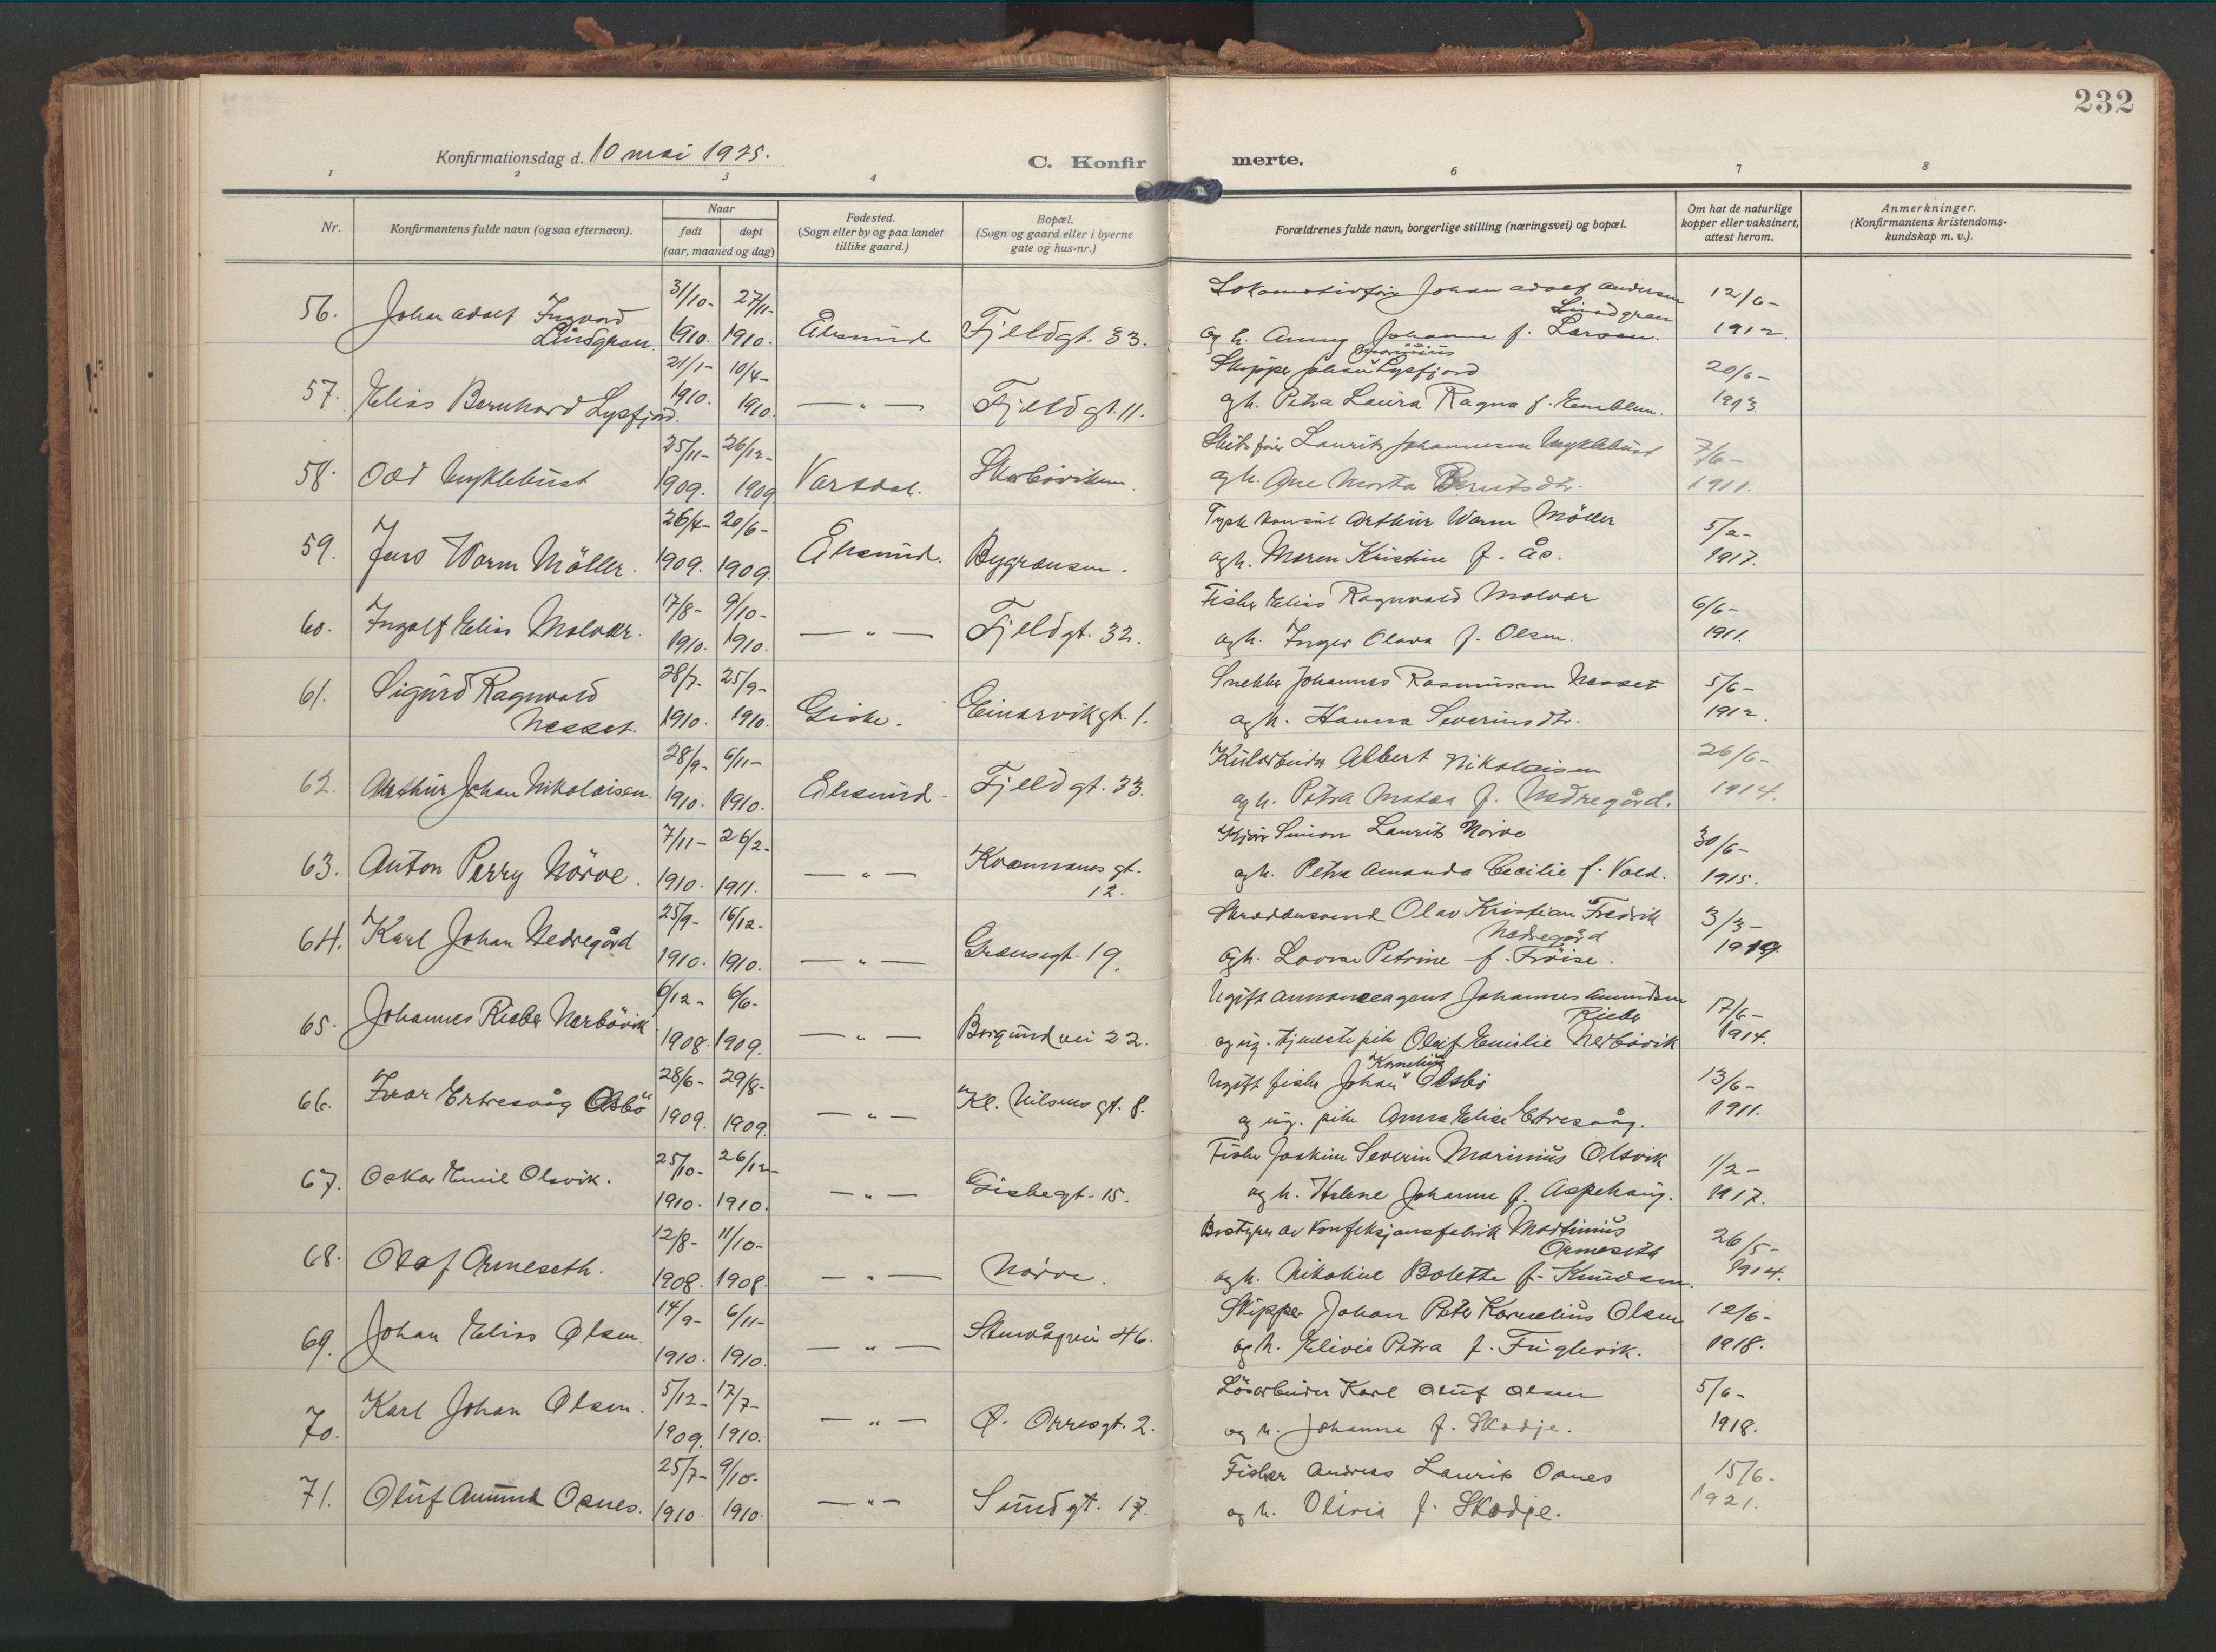 232
Konfirmationsdag d. 10 mai 1925.
C. Konfir merte.
1 2 3 4 6 7 8
Nr. Konfirmantens fulde navn (ogsaa efternavn). Naar født døpt (aar, maaned og dag) Fødested. (Sogn eller by og paa landet tillike gaard.) Bopæl. (Sogn og gaard eller i byerne gate og hus-nr.) Forældrenes fulde navn, borgerlige stilling (næringsvei) og bopæl. Om hat de naturlige kopper eller vaksinert, attest herom. Anmerkninger. (Konfirmantens kristendoms-kundskap m. v.).
31/10- 27/11- Johan Adolf Andersen 12/6-
56. Johan Adolf Ingvard Lindgren
Lindgren. 1910. 1910. Ålesund Fjeldgt. 33. og h. Johanne f. Larsen. 1912.
21/1- 10/4- Skipper Johan Lysfjord 20/6-
57. Elias Bernhard Lysfjord. 1910. 1910. — " — Fjeldgt. 11. og h. Petra Laura Ragna f. Emblem. 1913.
25/11- 26/12- Laurits Johannesen Myklebust 7/6-
58. Odd Myklebust 1909. 1909 Vartdal. og h. Ane Marta Berntsdtr. 1911.
26/4- 20/6- Tysk konsul Arthur Warm Möller 5/2-
59. Jens Warm Möller. 1909. 1909. Ålesund. Bygrænsen. og h. Maren Kristine f. Ås. 1917.
17/8- 9/10- Fisker Elias Ragnvald Molvær 6/6-
60. Ingolf Elias Molvær. 1910. 1910. — " — Fjeldgt. 32. og h. Inger Olava f. Olsen. 1911.
28/7- 25/9- Snekker Johannes Rasmussen Nesset 5/6-
61. Sigurd Ragnvald
Nesset. 1910. 1910. Giske. Einarvikgt. 1. og h. Hanna Severinsdtr. 1912.
28/9- 6/11- Kularbeider Albert Nikolaisen 26/6-
62. Arthur Johan Nikolaisen. 1910. 1910. Ålesund. Fjeldgt. 33. og h. Petra f. Nedregård. 1914.
7/11- 26/2- Simon Laurits Nörve 30/6-
63. Anton Perry Nörve. 1910. 1911. — " — Kvennanesgt. 12. og h. Petra Amanda Cecilie f. Vold. 1915.
25/9- 16/12- Skræddersvend Olav Kristian Fredrik 3/3-
Nedregård
64. Karl Johan Nedregård 1910. 1910. — " — Grensegt. 19. og h. Lovise Petrine f. Fröise. 1919.
6/12- 6/6- Ugift annonceagent Johannes Amundsen 17/6-
Rieber
65. Johannes Rieber Nerbövik 1908. 1909. — " — Borgundvei 22. og ug. tjenestepike Oluf Emilie Nerbövik 1914.
28/6- 29/8- Ugift fisker Johan Kornelius Olsbö 13/6-
66. Ivar Ertresvåg Olsbö 1909. 1909. — " — Kl. Nilsens gt. 8. og ug. pike Anna Elise Ertresvåg. 1911.
25/10- 26/12- Fisker Joakim Severin Marinius Olsvik 1/2-
67. Oskar Emil Olsvik. 1910. 1910. — " — Giskegt. 15. og h. Helene Johanne f. Aspehaug. 1917.
12/8- 11/10- Bestyrer av konfeksjonsfabrik Martinius 26/5-
Ormeseth
68. Olaf Ormeseth. 1908. 1908. — " — Nörve. og h. Nikoline Bolette f. Knudsen. 1914.
14/9- 6/11- Skipper Johan Peter Kornelius Olsen 12/6-
69. Johan Elias Olsen. 1910. 1910. — " — Stenvågvei 46. og h. Elivia Petra f. Fuglevik. 1918.
5/12- 17/7- Lösarbeider Karl Oluf Olsen 5/6-
70. Karl Johan Olsen. 1909. 1910. — " — Ö. Orresgt. 2. og h. Johanne f. Skodje. 1918.
25/7- 9/10- Fisker Andreas Laurits Osnes 15/6-
71. Oluf Amund Osnes. 1910. 1910. — " — Sundgt. 17. og h. Olivia f. Skodje. 1921.